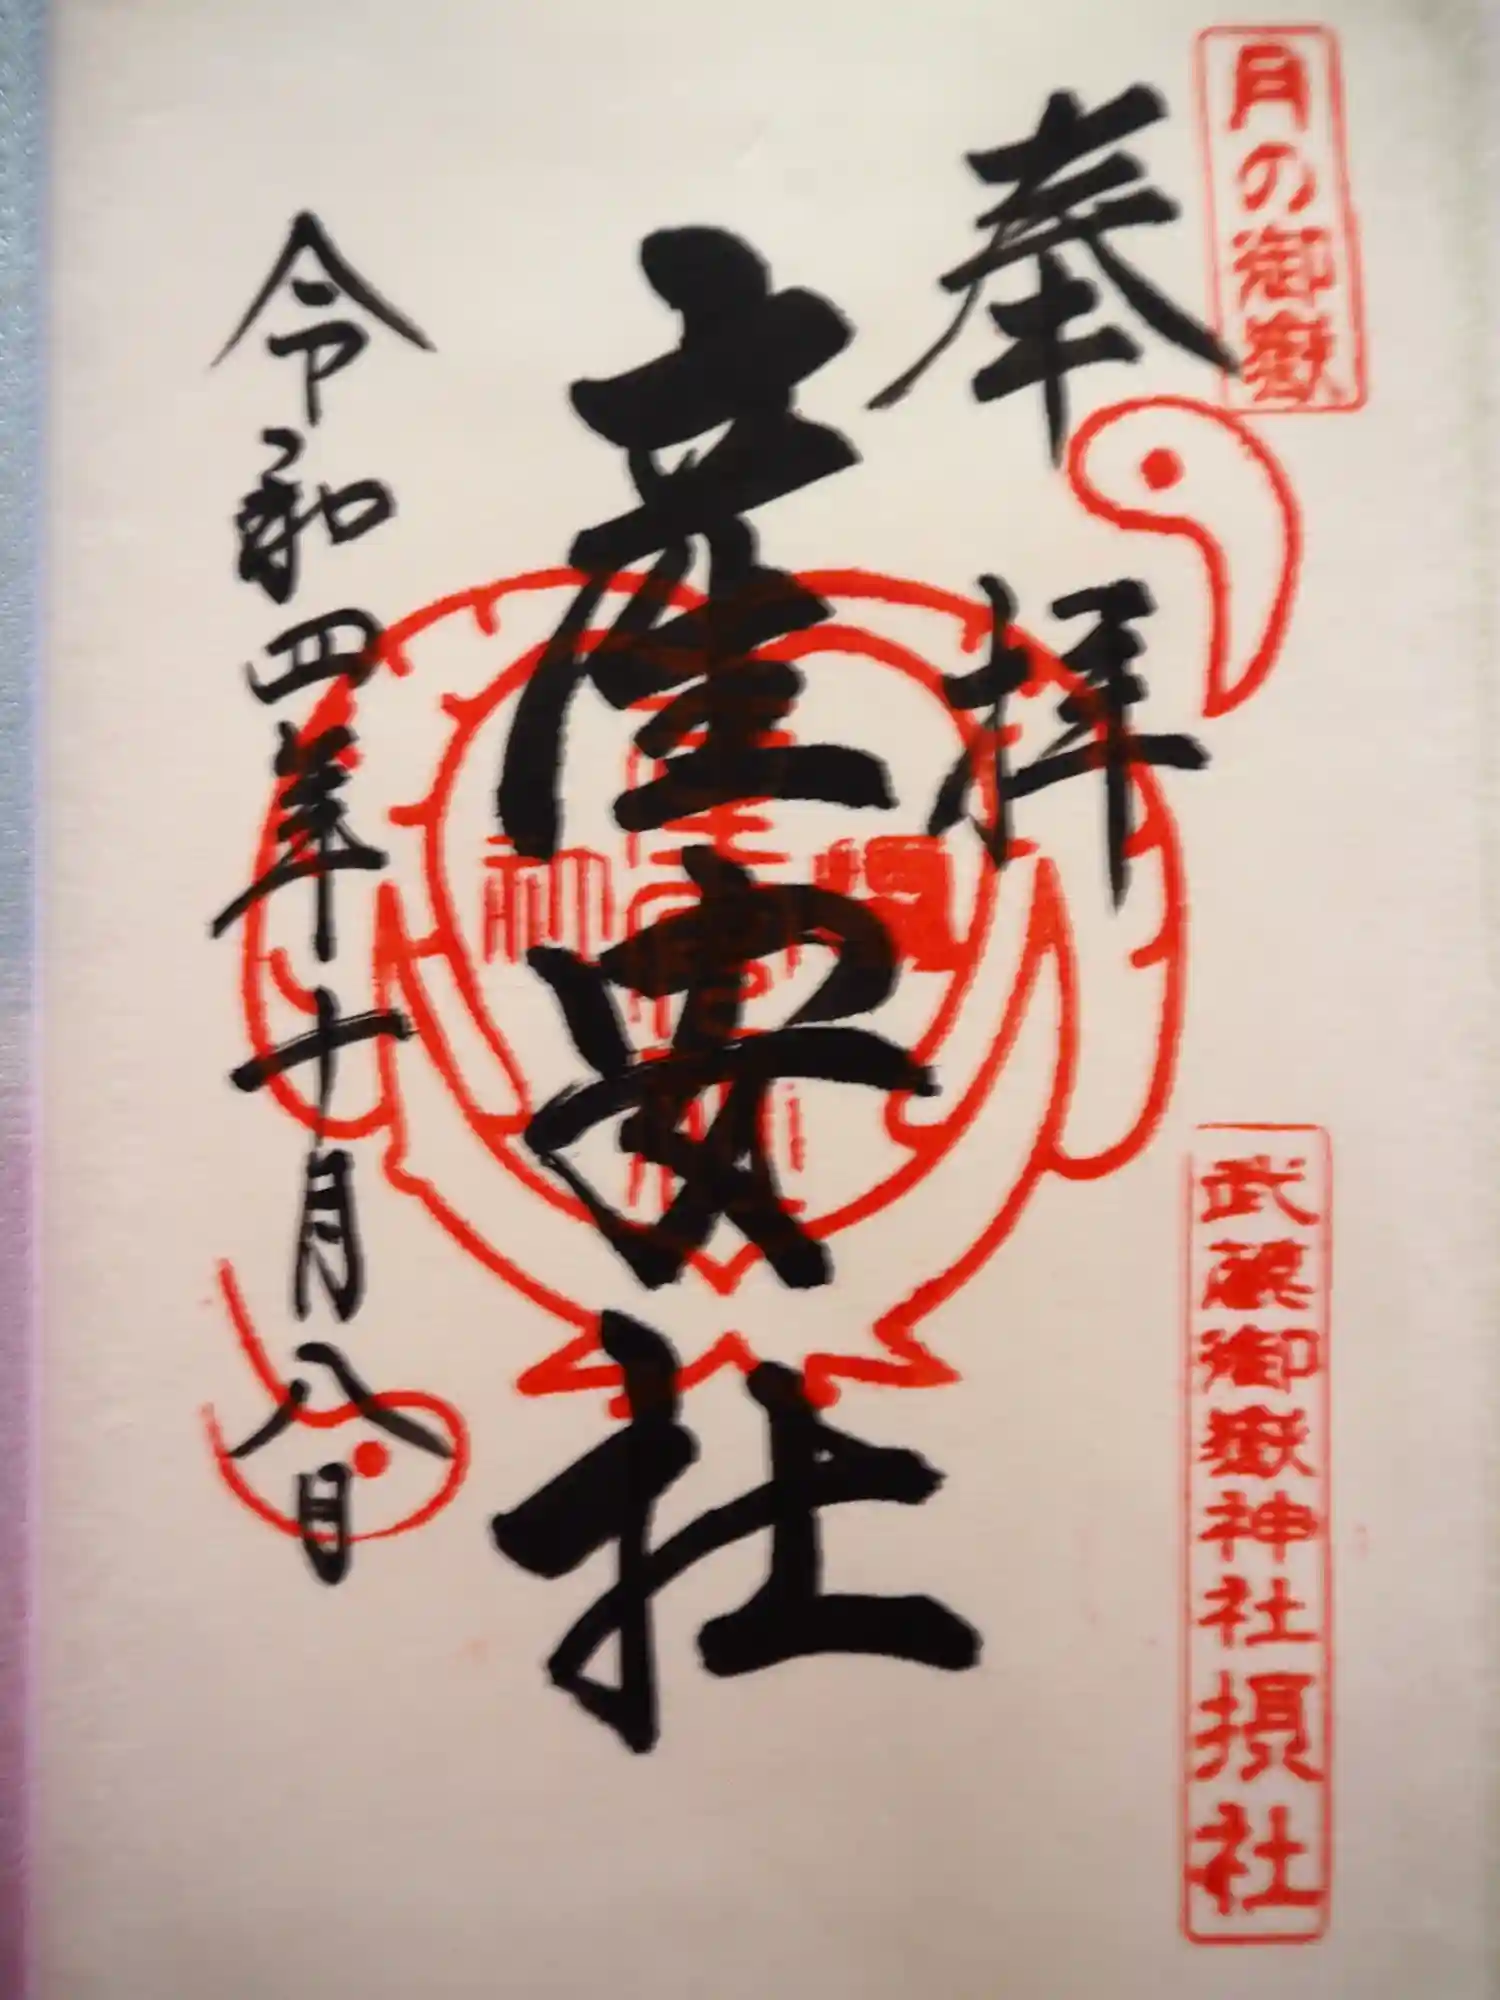 月の御嶽
奉拝
武蔵御嶽神社摂社
産安社
令和四年十月八日